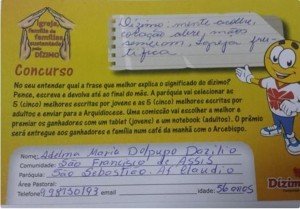 Igreja,
família de
famílias
sustentadas
pelo
DÍZIMO
Dízimo: mente acolhe,
coração abre, mãos
semeiam, Igreja fru-
tifica
Concurso
No seu entender qual a frase que melhor explica o significado do dízimo?
Pense, escreva e devolva até ao final do mês. A paróquia vai selecionar as
5 (cinco) melhores escritas por jovens e as 5 (cinco) melhores escritas por
adultos e enviar para a Arquidiocese. Uma comissão vai escolher a melhor e
premiar os ganhadores com um tablet (jovens) e um notebook (adultos). O prêmio
será entregue aos ganhadores e família num café da manhã com o Arcebispo.
Nome: Adelma Maria Dalpupo Dazilio
Comunidade: São Francisco de Assis
Paróquia: São Sebastião Af Claudio
Área Pastoral:
Telefone: 98730193 email idade: 56 anos
Dízimo